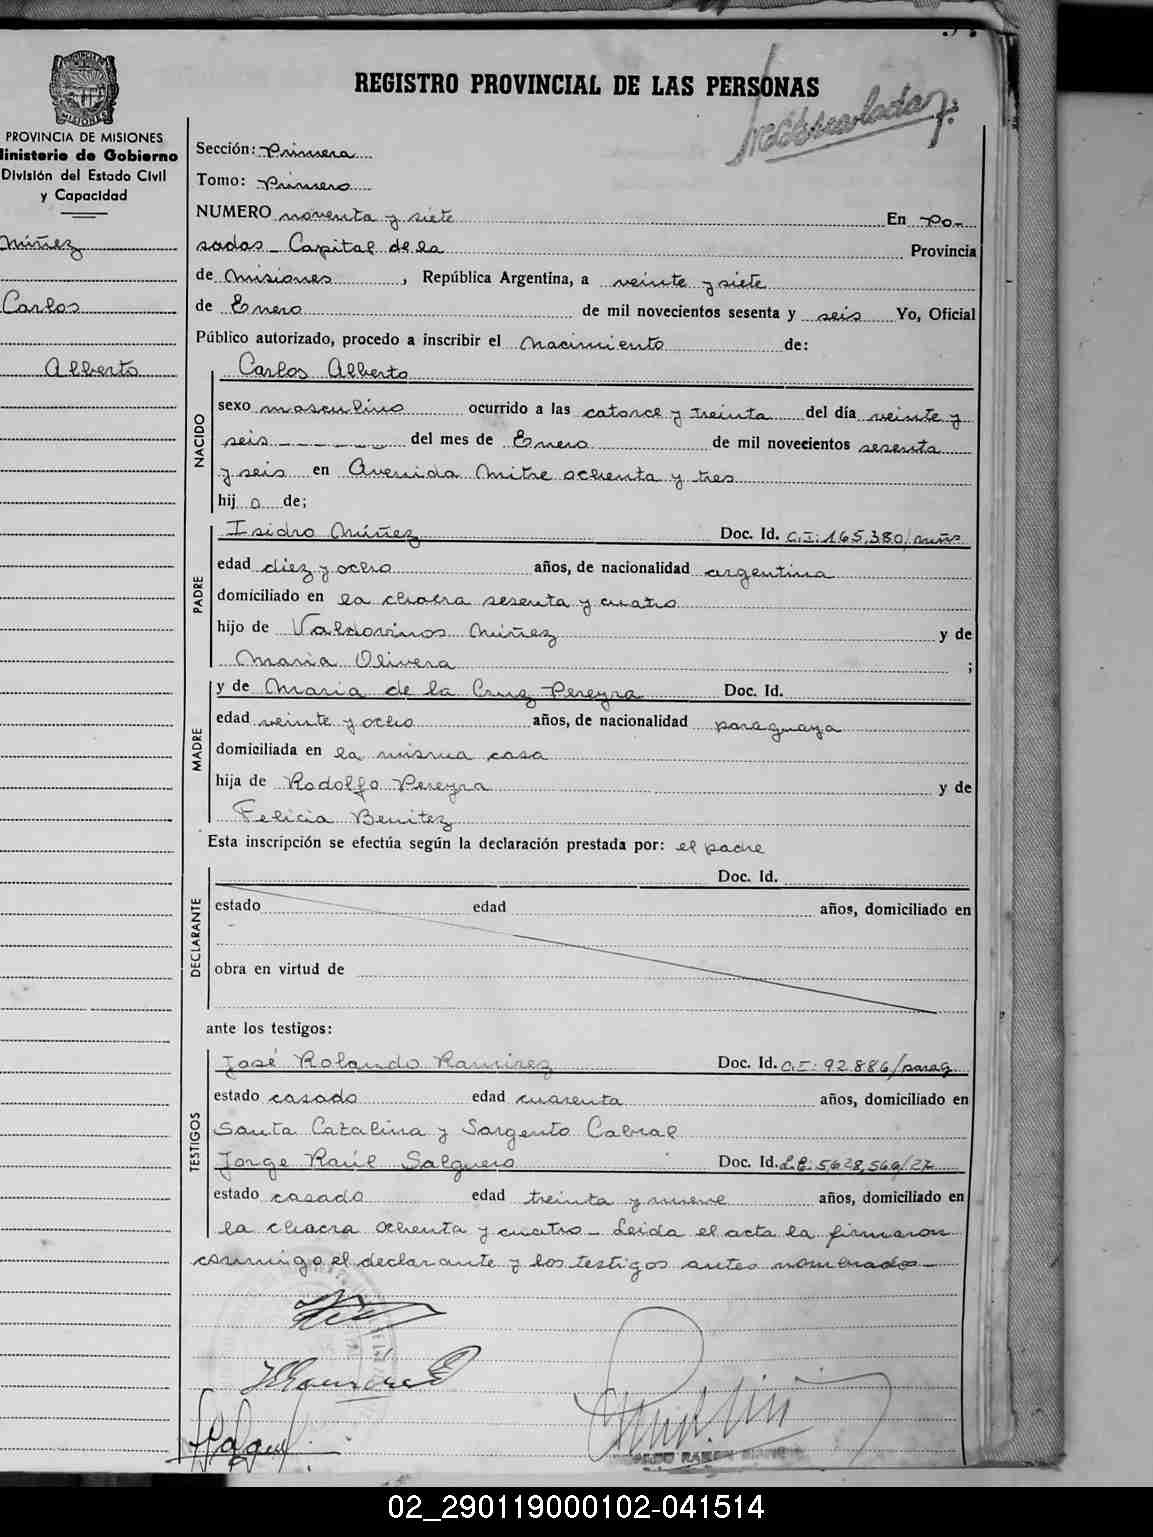 REGISTRO PROVINCIAL DE LAS PERSONAS
PROVINCIA DE MISIONES
Ministerio de Gobierno
División del Estado Civil
y Capacidad
Núñez
Carlos
Alberto
Sección: Primera
Tomo: Primero
NUMERO noventa y siete En Po-
sadas - Capital de la Provincia
de Misiones, República Argentina, a veinte y siete
de Enero de mil novecientos sesenta y seis Yo, Oficial
Público autorizado, procedo a inscribir el nacimiento de:
NACIDO
Carlos Alberto
sexo masculino ocurrido a las catorce y treinta del día veinte y
seis - - - - - del mes de Enero de mil novecientos sesenta
y seis en Avenida Mitre ochenta y tres
hij o de;
PADRE
Isidro Núñez Doc. Id. C.I: 165.380/mñs
edad diez y ocho años, de nacionalidad argentina
domiciliado en la chacra sesenta y cuatro
hijo de Valdovinos Núñez y de
Maria Olivera ;
MADRE
y de Maria de la Cruz Pereyra Doc. Id.
edad veinte y ocho años, de nacionalidad paraguaya
domiciliada en la misma casa
hija de Rodolfo Pereyra y de
Felicia Benitez
Esta inscripción se efectúa según la declaración prestada por: el padre
DECLARANTE
Doc. Id.
estado edad años, domiciliado en
obra en virtud de
ante los testigos:
TESTIGOS
José Rolando Ramirez Doc. Id. C.I: 92.886/parag
estado casado edad cuarenta años, domiciliado en
Santa Catalina y Sargento Cabral
Jorge Raúl Salguero Doc. Id. L.E: 5,628,569/27
estado casado edad treinta y nueve años, domiciliado en
la chacra ochenta y cuatro - Leida el acta la firmaron
conmigo el declarante y los testigos antes nombrados -
02_290119000102-041514